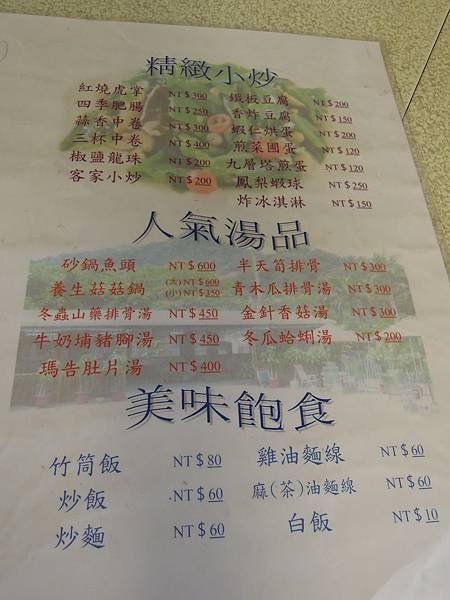 精緻小炒
紅燒虎掌 NT$300
四季肥腸 NT$250
蒜香中卷 NT$300
三杯中卷 NT$400
椒鹽龍珠 NT$200
客家小炒 NT$200
鐵板豆腐 NT$200
香炸豆腐 NT$150
蝦仁烘蛋 NT$200
煎菜圃蛋 NT$120
九層塔煎蛋 NT$120
鳳梨蝦球 NT$250
炸冰淇淋 NT$150
人氣湯品
砂鍋魚頭 NT$600
養生菇菇鍋 (大)NT$600
(小)NT$350
冬蟲山藥排骨湯 NT$450
牛奶埔豬腳湯 NT$450
瑪告肚片湯 NT$400
半天筍排骨 NT$300
青木瓜排骨湯 NT$300
金針香菇湯 NT$300
冬瓜蛤蜊湯 NT$200
美味飽食
竹筒飯 NT$80
炒飯 NT$60
炒麵 NT$60
雞油麵線 NT$60
麻(茶)油麵線 NT$60
白飯 NT$10